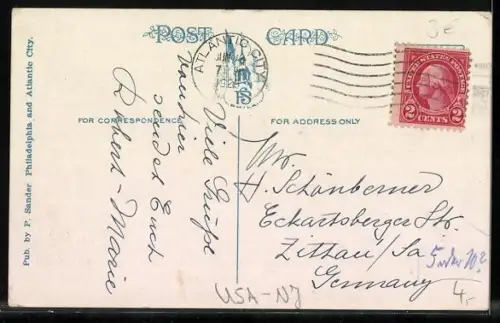 POST CARD
ATLANTIC CITY
FOR CORRESPONDENCE
FOR ADDRESS ONLY
UNITED STATES POSTAGE
2 CENTS 2
Viele Grüße
sendet Euch
Robert - Marie
Mr.
H. Schönberner
Eckartsberger Str.
Zittau / Sa
Germany
USA-NJ
4,-
3€
Pub. by P. Sander Philadelphia and Atlantic City.